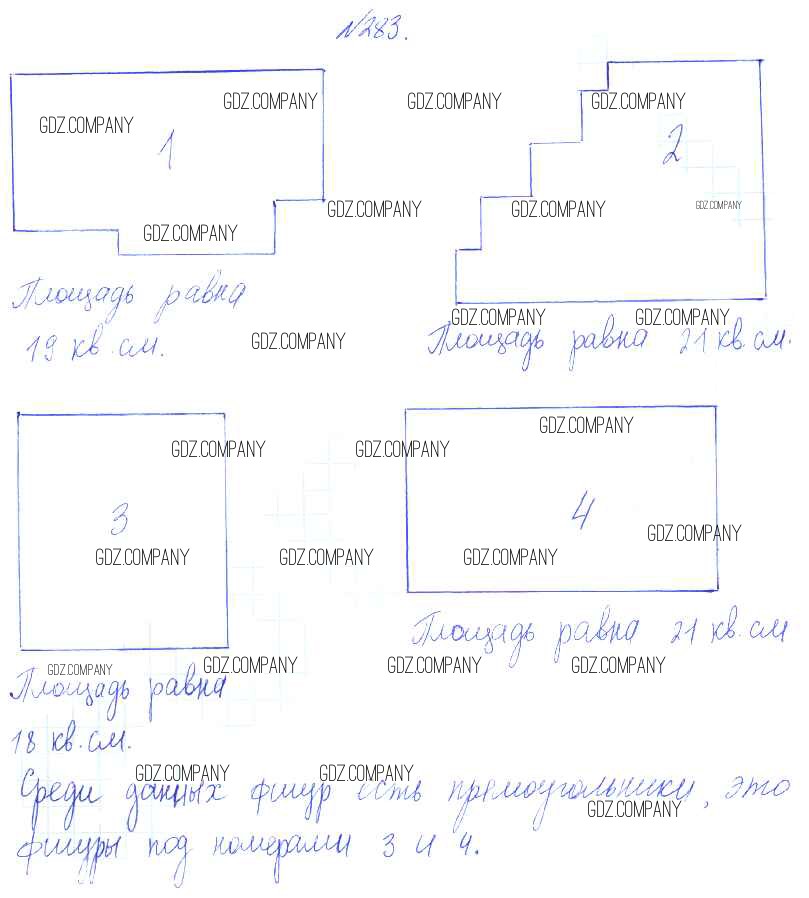 №283.
GDZ.COMPANY GDZ.COMPANY GDZ.COMPANY
GDZ.COMPANY
1
2
GDZ.COMPANY GDZ.COMPANY GDZ.COMPANY
GDZ.COMPANY
Площадь равна
19 кв.см.
GDZ.COMPANY
GDZ.COMPANY GDZ.COMPANY
Площадь равна 21 кв.см.
GDZ.COMPANY
GDZ.COMPANY GDZ.COMPANY
3
4
GDZ.COMPANY
GDZ.COMPANY GDZ.COMPANY GDZ.COMPANY
Площадь равна 21 кв.см
GDZ.COMPANY GDZ.COMPANY GDZ.COMPANY GDZ.COMPANY
Площадь равна
18 кв.см.
GDZ.COMPANY GDZ.COMPANY
Среди данных фигур есть прямоугольники, это
GDZ.COMPANY
фигуры под номерами 3 и 4.